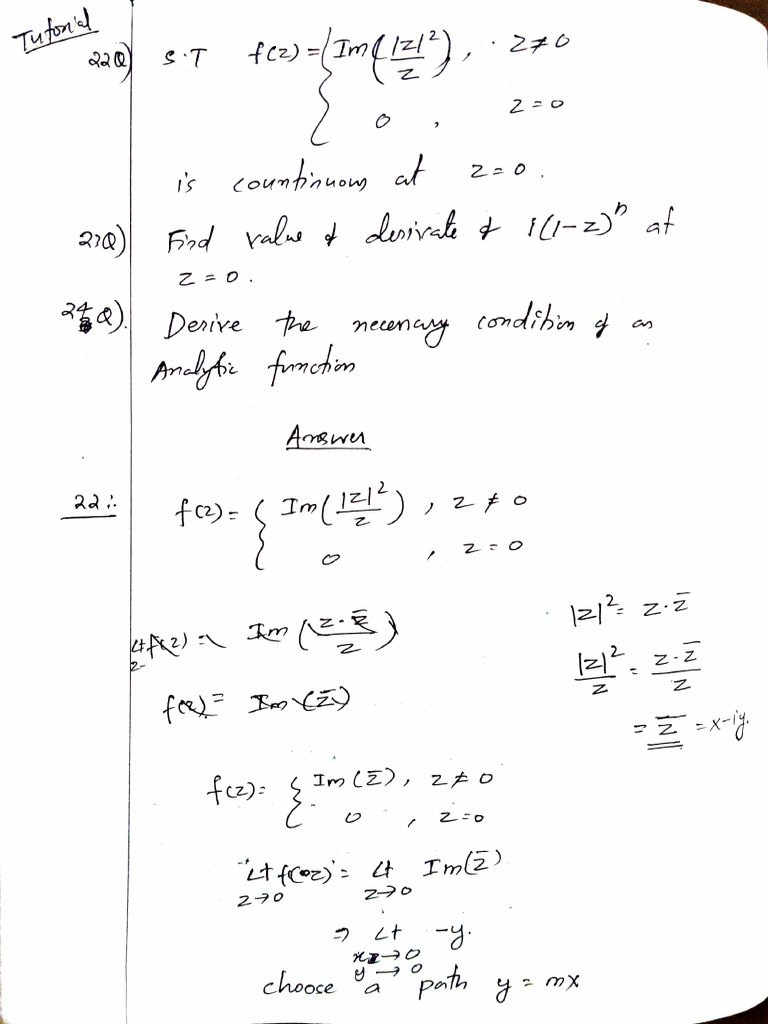 Tutorial
22Q) S.T f(z) = { Im(|z|²/z), z ≠ 0
0, z = 0
is countinuous at z = 0.
23Q) Find value of derivate of i(1-z)ⁿ at
z = 0.
24Q). Derive the necessary condition of an
Analytic function
Answer
22:- f(z) = { Im(|z|²/z), z ≠ 0
0, z = 0
Lt f(z) = Im(z·z̄/z)
z-
f(z) = Im(z̄)
|z|² = z·z̄
|z|²/z = z·z̄/z
= z̄ = x-iy.
f(z) = { Im(z̄), z ≠ 0
0, z = 0
Lt f(z) = Lt Im(z̄)
z→0 z→0
⇒ Lt -y.
x→0
y→0
choose a path y = mx